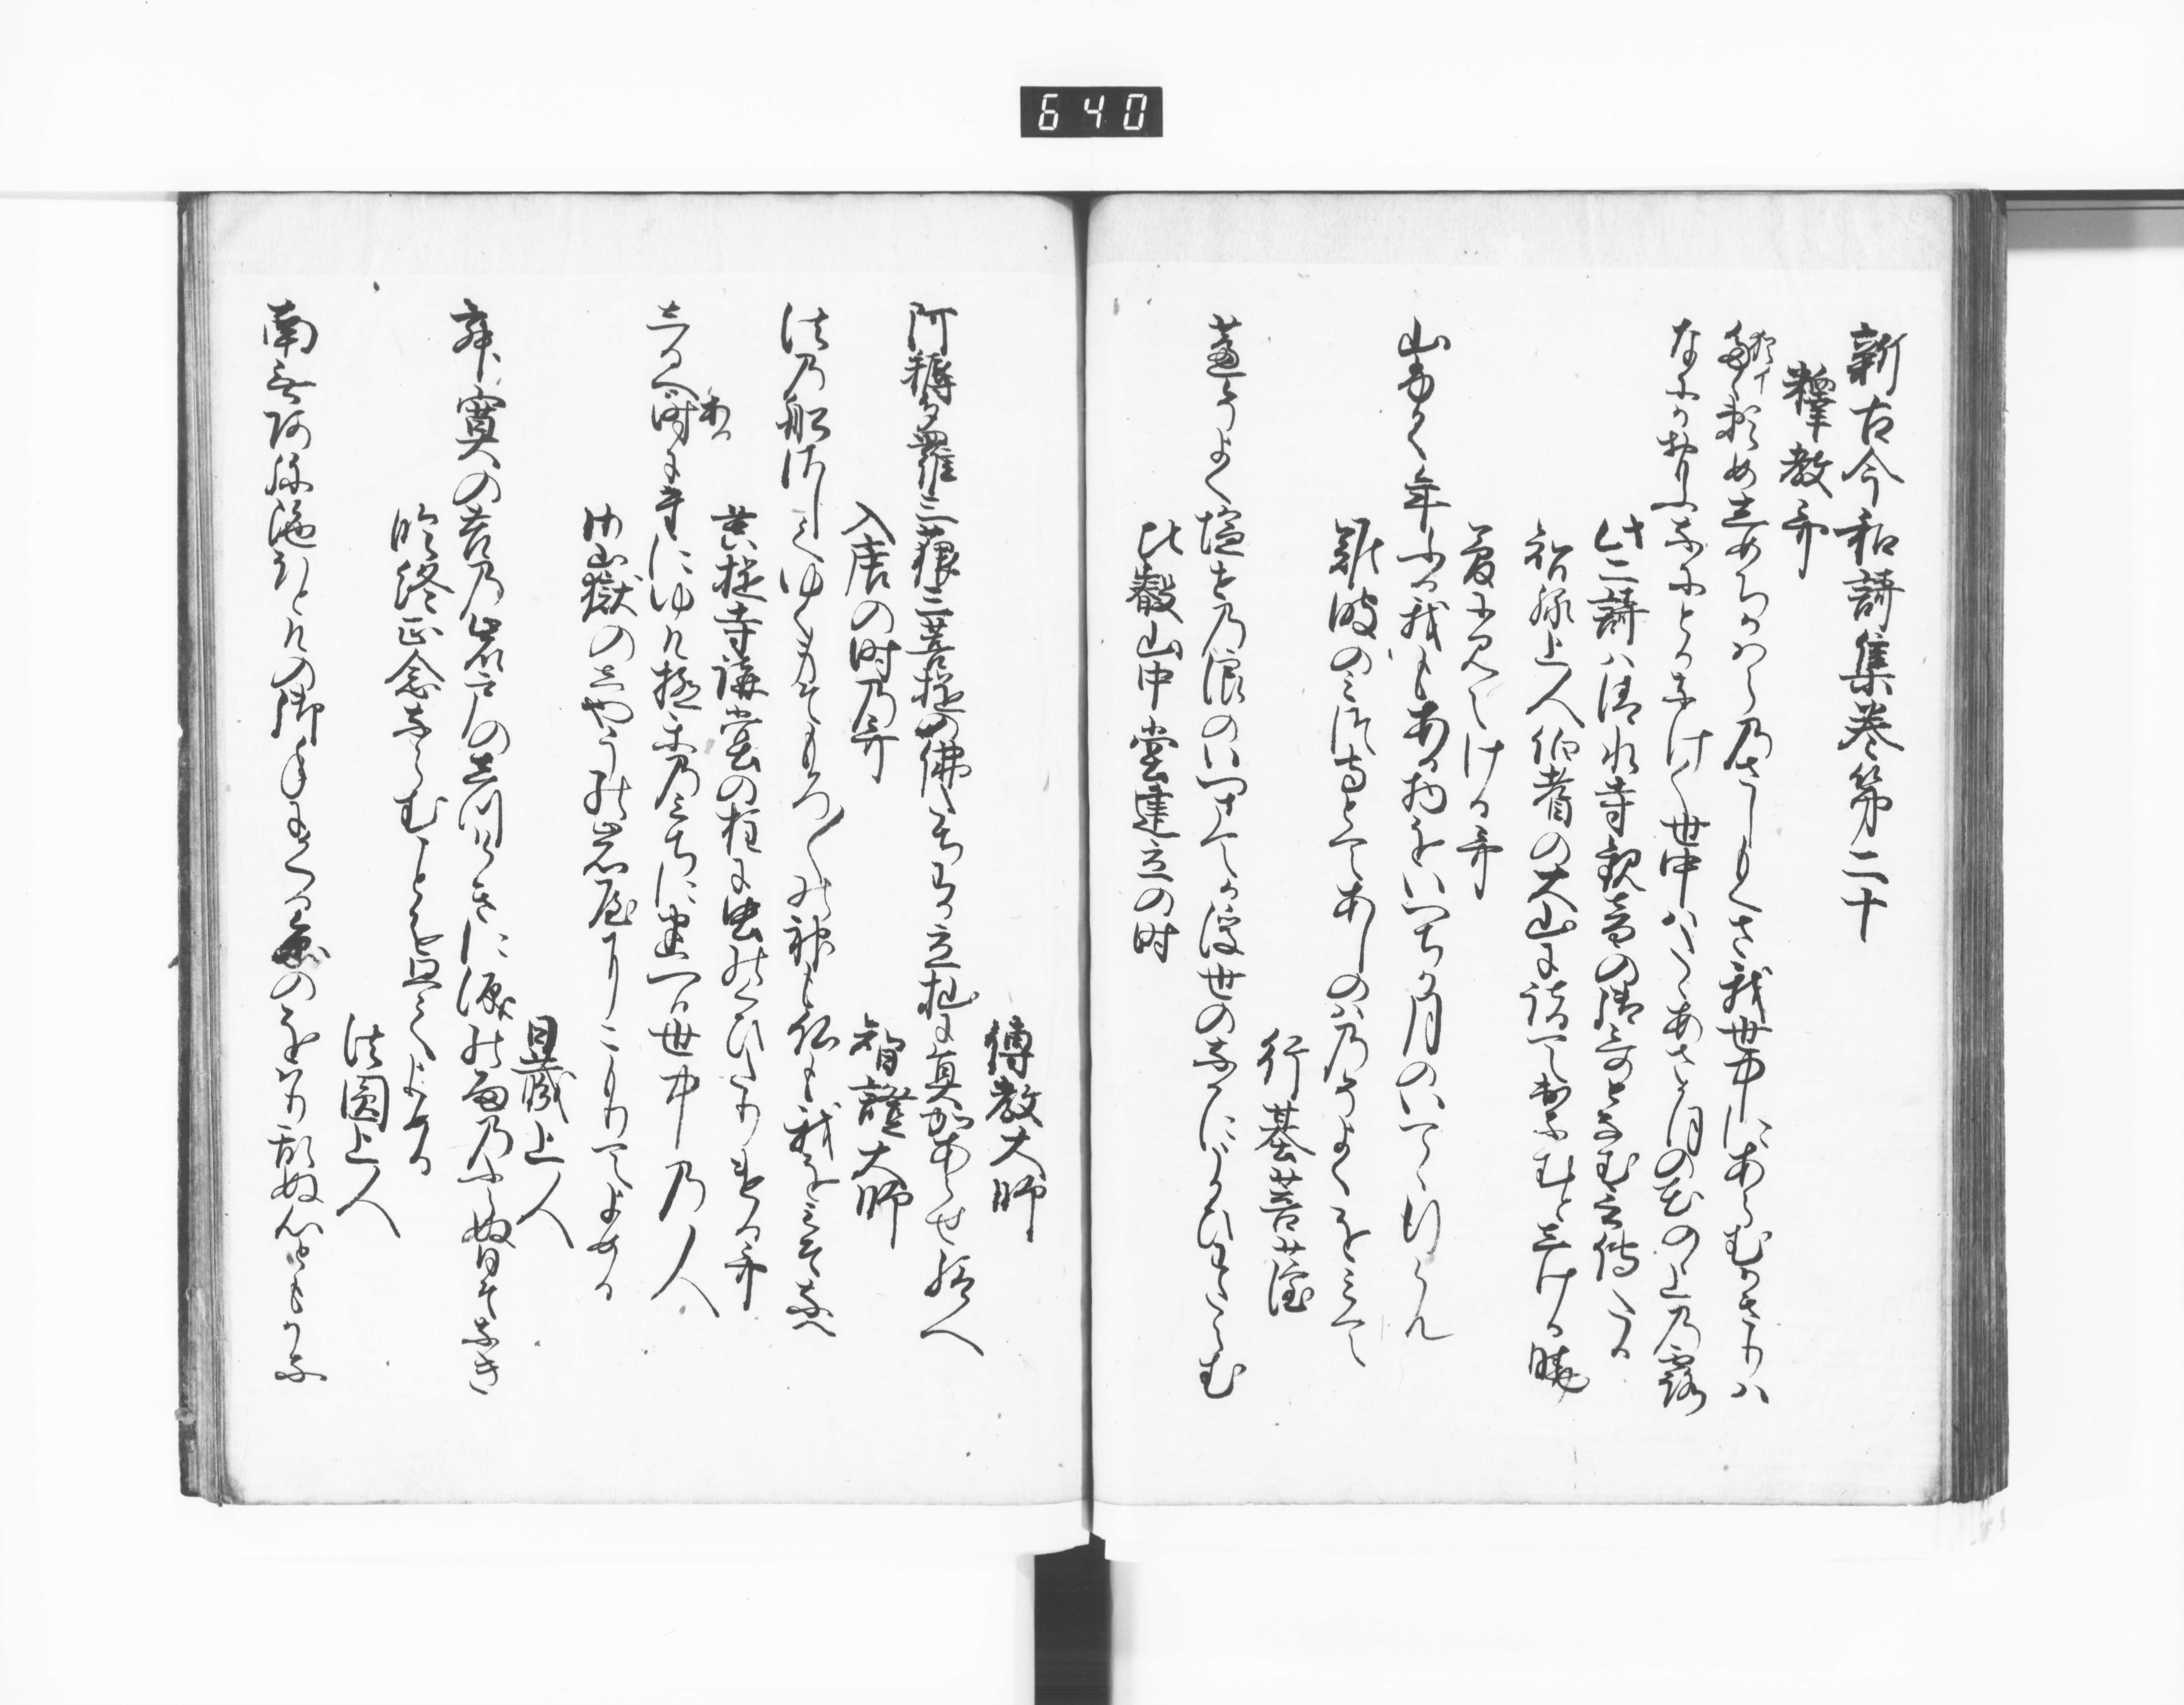 640
新古今和謌集巻第二十
釈教哥
猶頼めしめちかはらのさしもくさ我世中にあらむかきりハ
なにかおもふなにとかなけく世中ハたゝあさかほの花の上の露
此二謌ハ清水寺観音の御哥となむいひ傳たる
智縁上人伯耆の大山に詣ていなむとしける暁
夢に見えける哥
山ふかく年ふる我もある物をいつちか月のいてゝ行らん
難波のみつ寺にてあしの葉のそよくをみて
行基菩薩
芦そよく塩せの浪のいつまてか浮世のなかにうかひわたらむ
比叡山中堂建立の時
傳教大師
阿耨多羅三藐三菩提の佛たちわか立杣に冥加あらせ給へ
入唐の時の哥
智證大師
法の船さしてゆく身そもろ〳〵の神も仏も我をみそなへ
菩提寺講堂の柱に虫のくひたりける哥
しるへある時にを
寺にゆけ極楽のみちにまとへる世中の人
御山嶽のしやうの岩屋にこもりてよめる
日蔵上人
寂寞の苔の岩戸のしつけきに涙の雨のふらぬ日そなき
臨終正念ならむことを思てよめる
法圓上人
南無阿弥陀ほとけの御手にかくる糸のをはり乱ぬ心ともかな